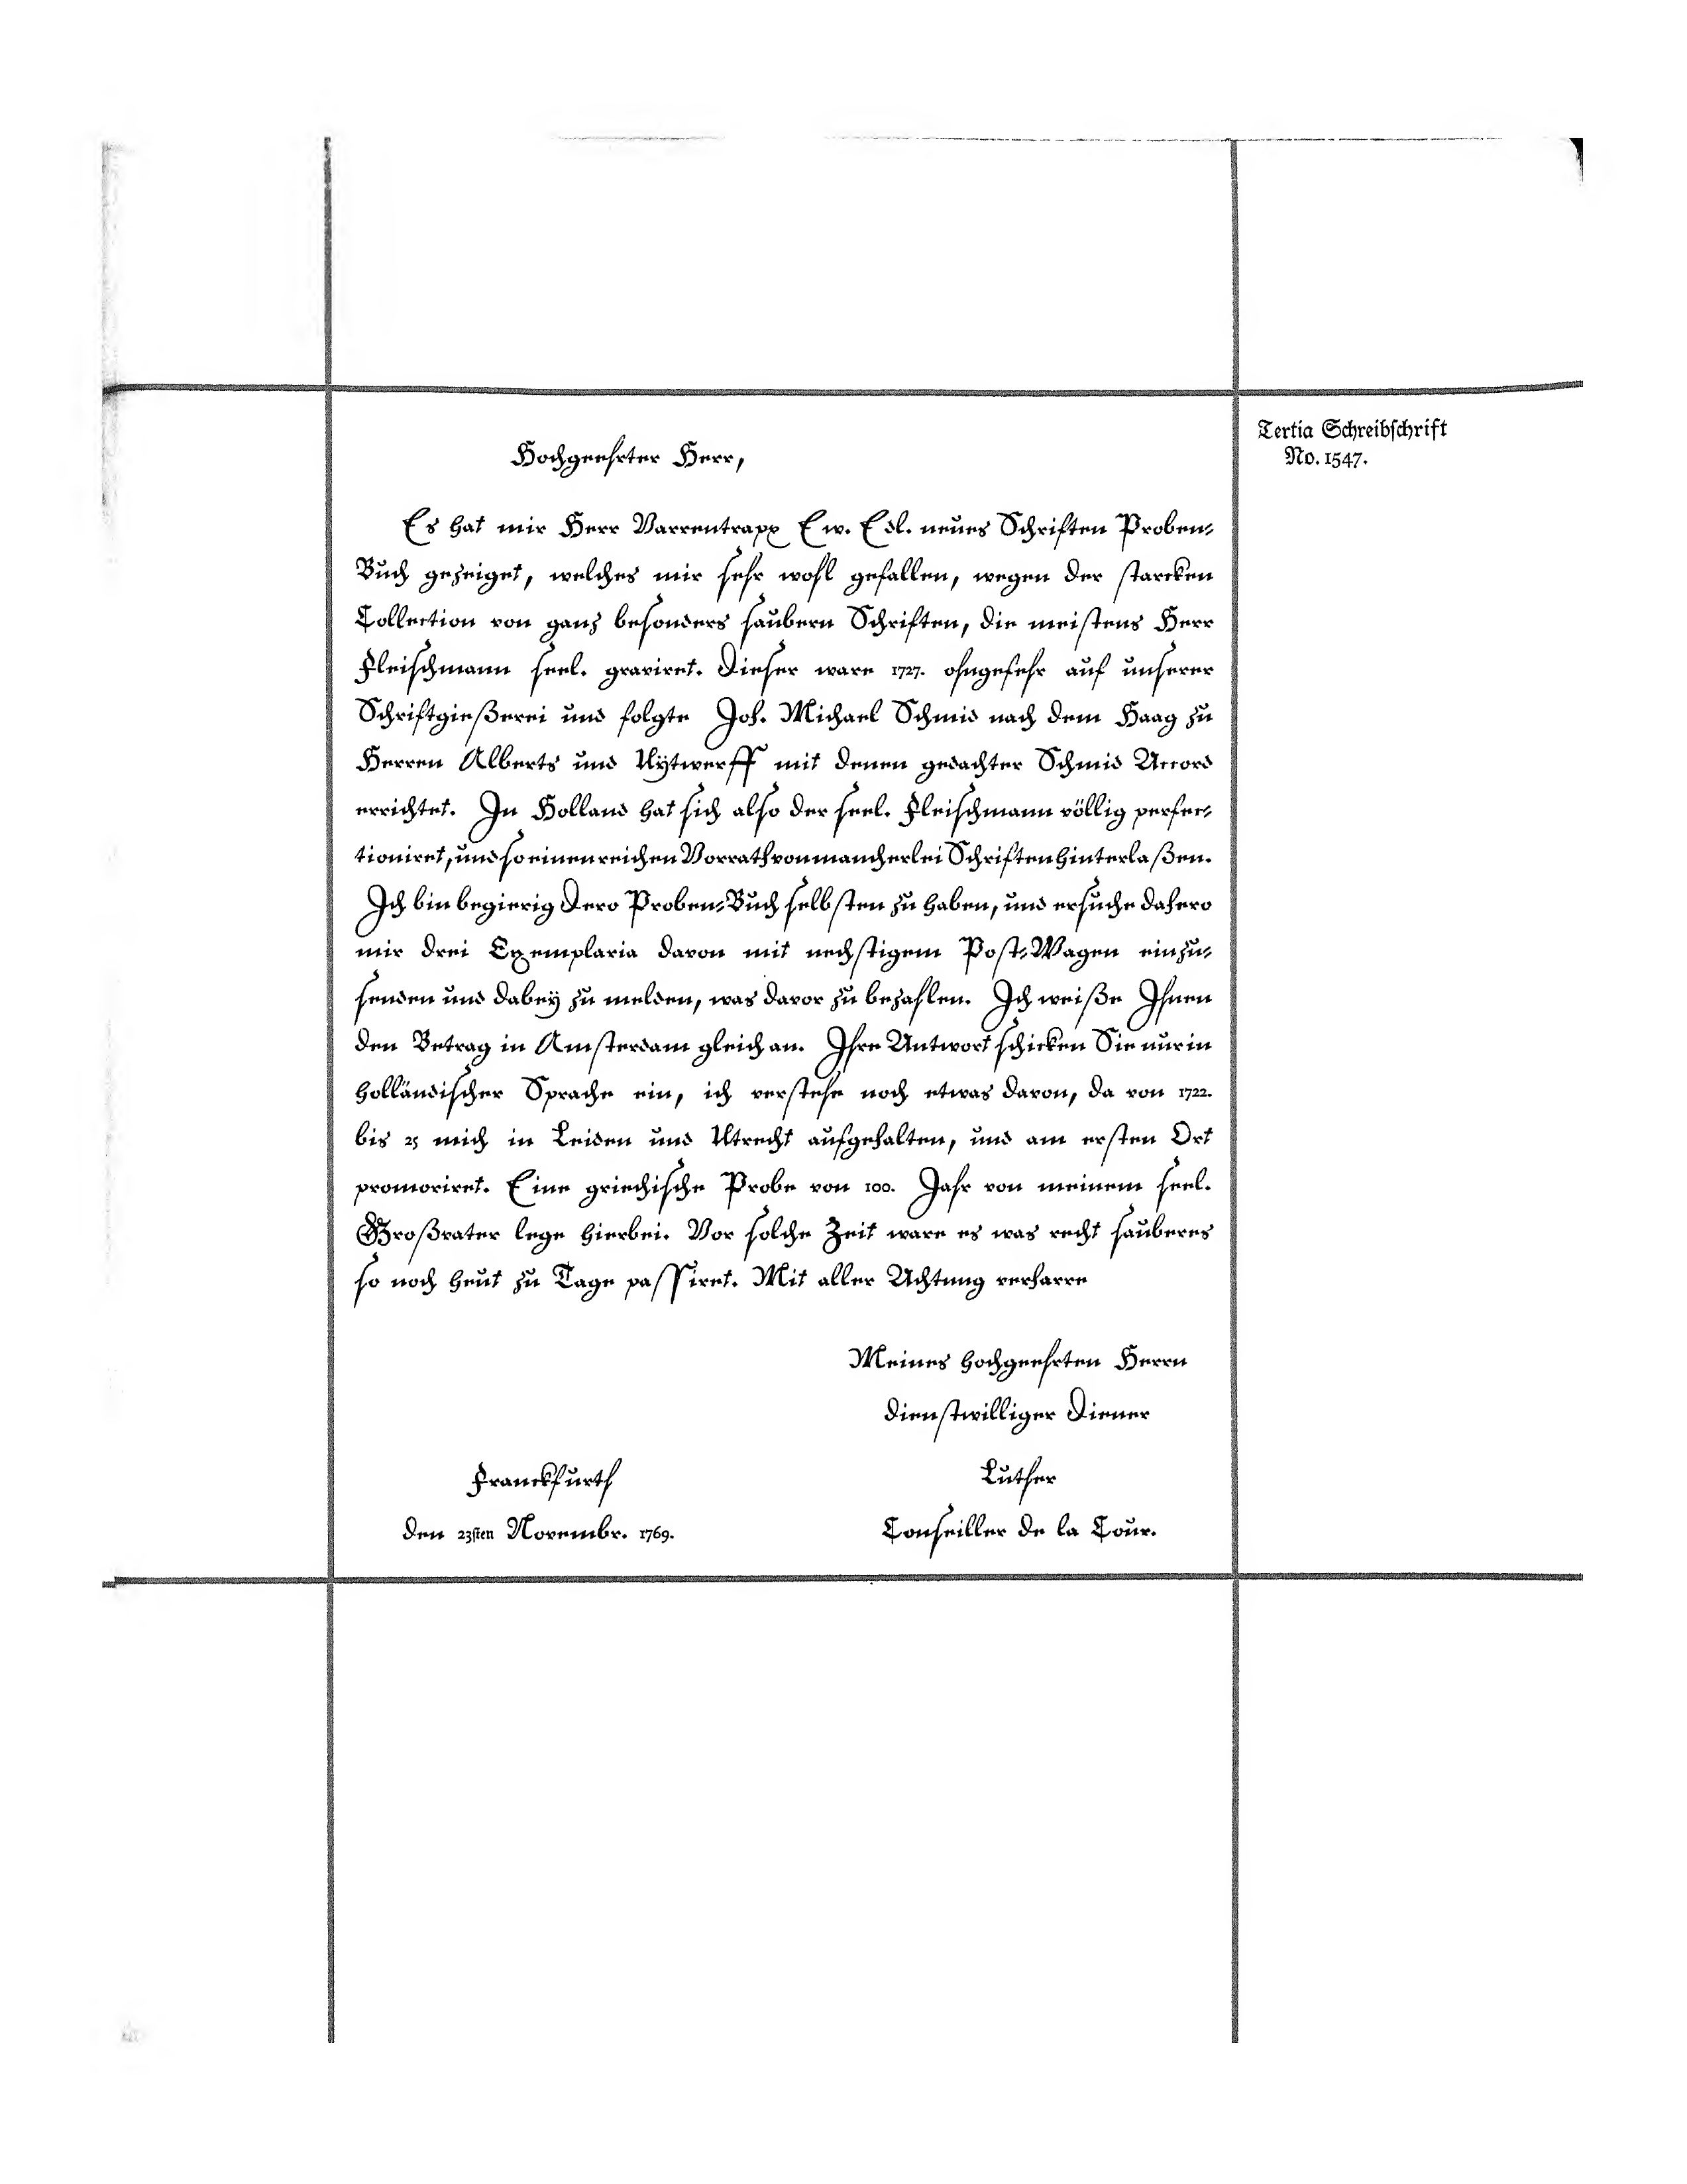 Tertia Schreibschrift
No. 1547.
Hochgeehrter Herr,
Es hat mir Herr Varrentrapp Ew. Edl. neues Schriften Proben-
Buch gezeiget, welches mir sehr wohl gefallen, wegen der starcken
Collection von ganz besonders saubern Schriften, die meistens Herr
Fleischmann seel. graviret. Dieser ware 1727. ohngefehr auf unserer
Schriftgießerei und folgte Joh. Michael Schmid nach dem Haag zu
Herren Alberts und Uÿtwerff mit denen gedachter Schmid Accord
errichtet. In Holland hat sich also der seel. Fleischmann völlig perfec-
tioniret, und so einen reichen Vorrath von mancherlei Schriften hinterlaßen.
Ich bin begierig Dero Proben-Buch selbsten zu haben, und ersuche dahero
mir drei Exemplaria davon mit nechstigem Post-Wagen einzu-
senden und dabeÿ zu melden, was davor zu bezahlen. Ich weiße Ihnen
den Betrag in Amsterdam gleich an. Ihre Antwort schicken Sie nur in
holländischer Sprache ein, ich verstehe noch etwas davon, da von 1722.
bis 25 mich in Leiden und Utrecht aufgehalten, und am ersten Ort
promoviret. Eine griechische Probe von 100. Jahr von meinem seel.
Großvater lege hierbei. Vor solche Zeit ware es was recht sauberes
so noch heut zu Tage passiret. Mit aller Achtung verharre
Meines hochgeehrten Herrn
dienstwilliger Diener
Franckfurth Luther
den 23sten Novembr. 1769. Conseiller de la Cour.